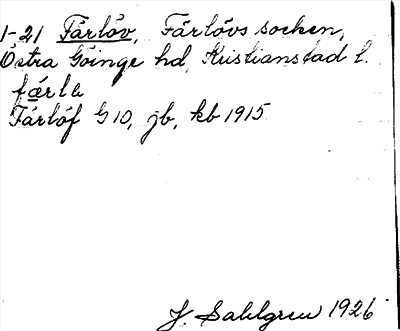 1-21 Färlöv, Färlövs socken,
Östra Göinge hd, Kristianstad l.
färla
Färlöf G 10, jb, kb 1915
J. Sahlgren 1926